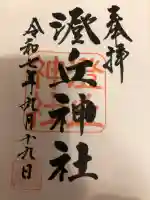 奉拝
澄丘神社
令和七年九月十九日